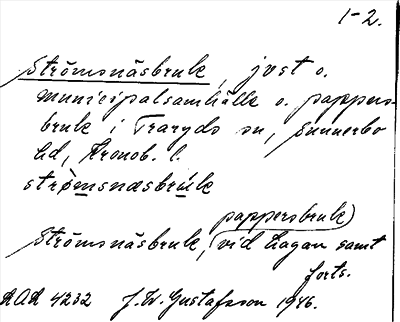 1-2.
Strömsnäsbruk, jvst o.
municipalsamhälle o. pappers-
bruk i Traryds sn, Sunnerbo
hd, Kronob. l.
strömsnæsbruk
pappersbruk)
Strömsnäsbruk, vid Lagan samt
forts.
OAU 4232 J. W. Gustafsson 1946.